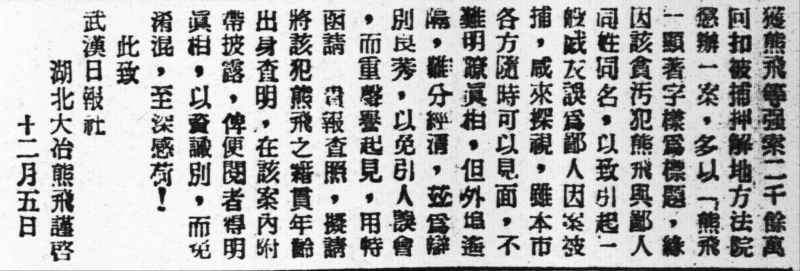 獲熊飛等强案二千餘萬
向扣被捕押解地方法院
懲辦一案，多以「熊飛
一顯著字樣爲標題，緣
因該貪汚犯熊飛與鄙人
同姓同名，以致引起一
般戚友誤爲鄙人因案被
捕，咸來探視，雖本市
各方隨時可以見面，不
難明瞭眞相，但外埠遙
隔，難分經清，並爲辯
別良莠，以免引人誤會
，而重聲譽起見，用特
函請　貴報查照，擬請
將該犯熊飛之籍貫年齡
出身査明，在該案內附
帶披露，俾便閱者得明
眞相，以資識別，而免
淆混，至深感荷！
此致
武漢日報社
湖北大冶熊飛謹啓
十二月五日